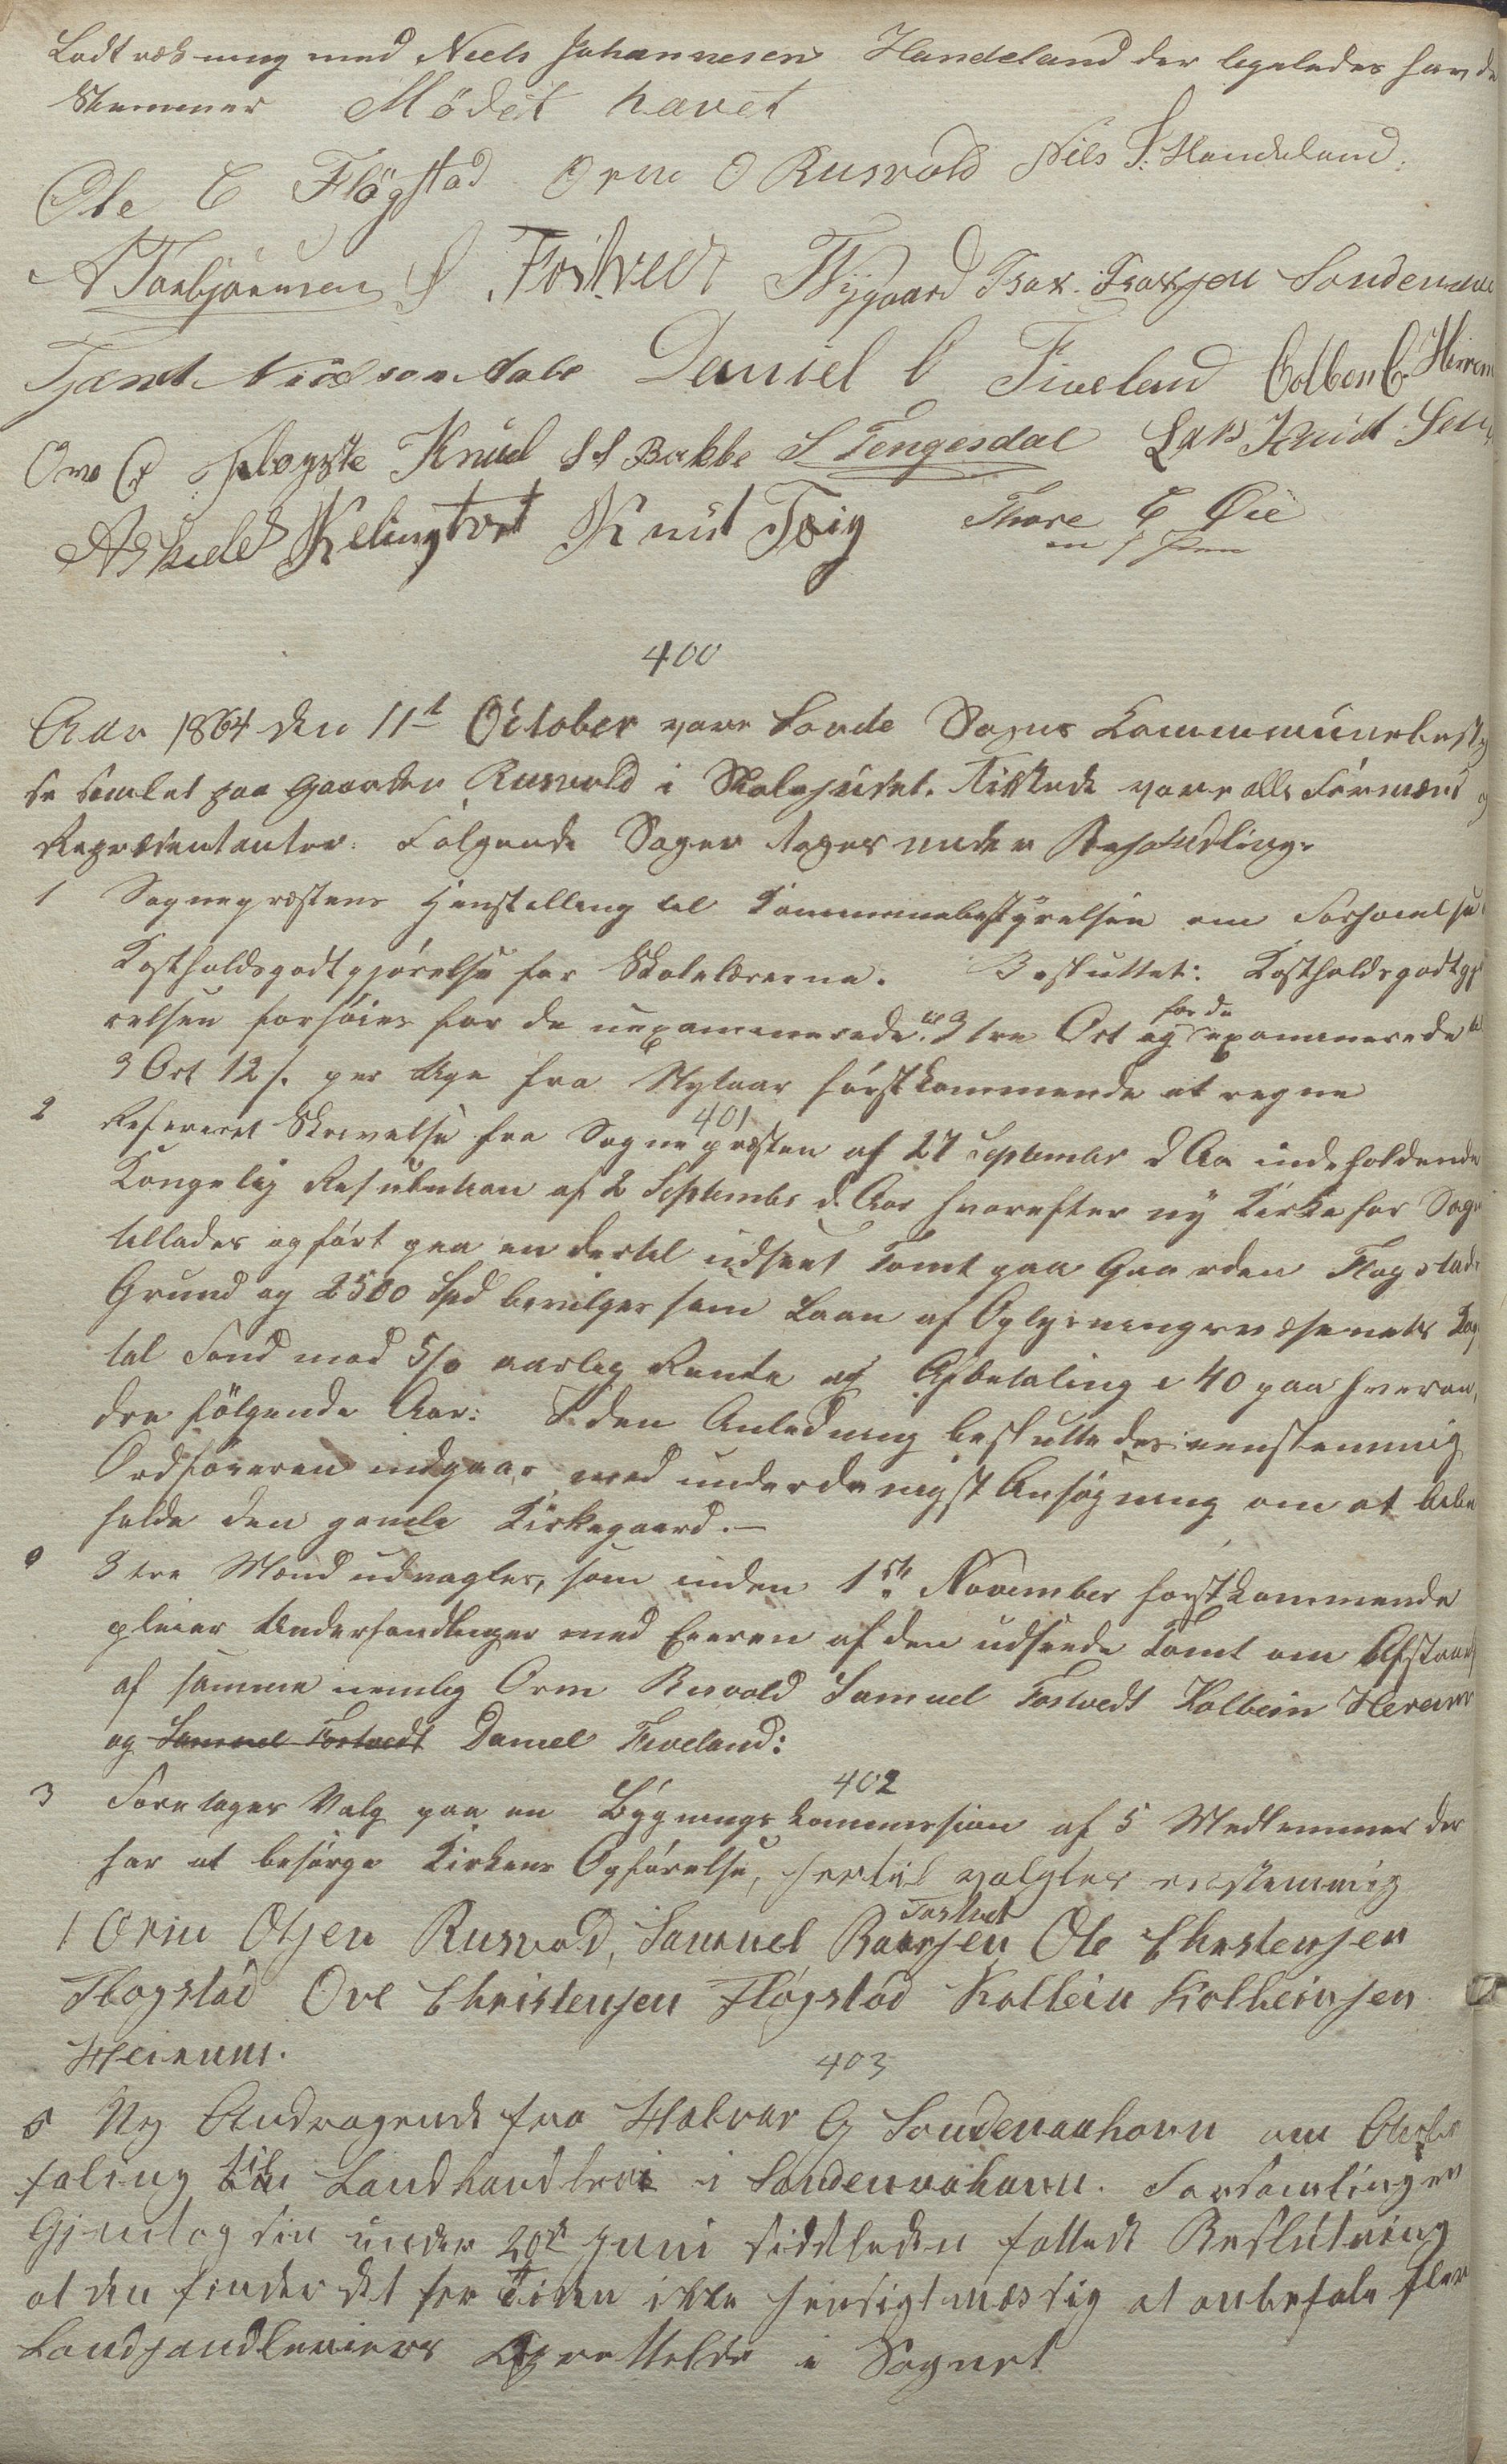 Lodtrækning med Niels Johannesen Handeland der ligeledes havde
Stemmer Mødet hævet
Ole C Flögstad Orm O Rusvold Nils J. Handeland.
A Torbjörnsen S Fostvedt TNygaard Isak Isaksen Søndenaae
Tjæmt Nielsen Aabø Daniel C Fiveland Colben C. Heirem
Ove C Flogste Knud SS Bakke S Tengesdal Lars Knudt Sen
Aschild Kelingtvet Knut Tvig Thore C Øie
m f Pen
400
Aar 1864 den 11te October vare Sovde Sogns Kommunebesty
se samlet paa Gaarden Rusvold i Skolehuset. Tilstede vare alle Formænd og
Repræsentanter. Følgende Sager toges under Behandling.
1 Sognepræstens Henstilling til Kommunebestyrelsen om Forhøielse
Kostholdsgodtgjørelse for Skolelærerne. Besluttet: Kostholdsgodtgjø
relsen forhøies for de uexaminerede til 3 tre Ort og for de examinerede til
3 Ort 12 s. per Uge fra Nytaar førstkommende at regne
401
2 Refereret Skrivelse fra Sognepræsten af 27 September d Aa indeholdende
Kongelig Resulution af 2 Septembr d. Aar hvorefter ny Kirke for Sogn
tillades opført paa en dertil udseet Tomt paa Gaarden Flogstads
Grund og 2500 Spd bevilges som Laan af Oplysningsvæsenets Kap
tal Fond mod 5/0 aarlig Rente og Afbetaling i 40 paa hveran,
dre følgende Aar: I den Anledning besluttedes eenstemmig
Ordføreren indgaar med underdanigst Ansøgning om at bibe
holde den gamle Kirkegaard.—
3 tre Mænd udvagtes, som inden 1ste November førstkommende
pleier Underhandlinger med Eieren af den udseede Tomt om Afstaaels
af samme nemlig Orm Rusvold Samuel Fostvedt Kolbein Hereim
og Samuel Fostvedt Daniel Fiveland:
402
3 Foretages Valg paa en Bygnings Kommission af 5 Medlemmer der
har at besørge Kirkens Opførelse, hertil valgtes enstemmig
1 Orm Olsen Rusvold, Samuel Baarsen Fostvet Ole Christensen
Flogstad Ove Christensen Flögstad Kolbein Kolbeinsen
Heireim.
403
5 Ny Andragende fra Halvar G Søndenaahavn om Anbe
faling til Landhandleri i Søndenaahavn. Forsamlingen
Gjentog sin under 20de Juni sidstleden fattede Beslutning
at den finder det for Tiden ikke hensigtmæssig at anbefale flere
Landhandleriers Oprettelse i Sognet